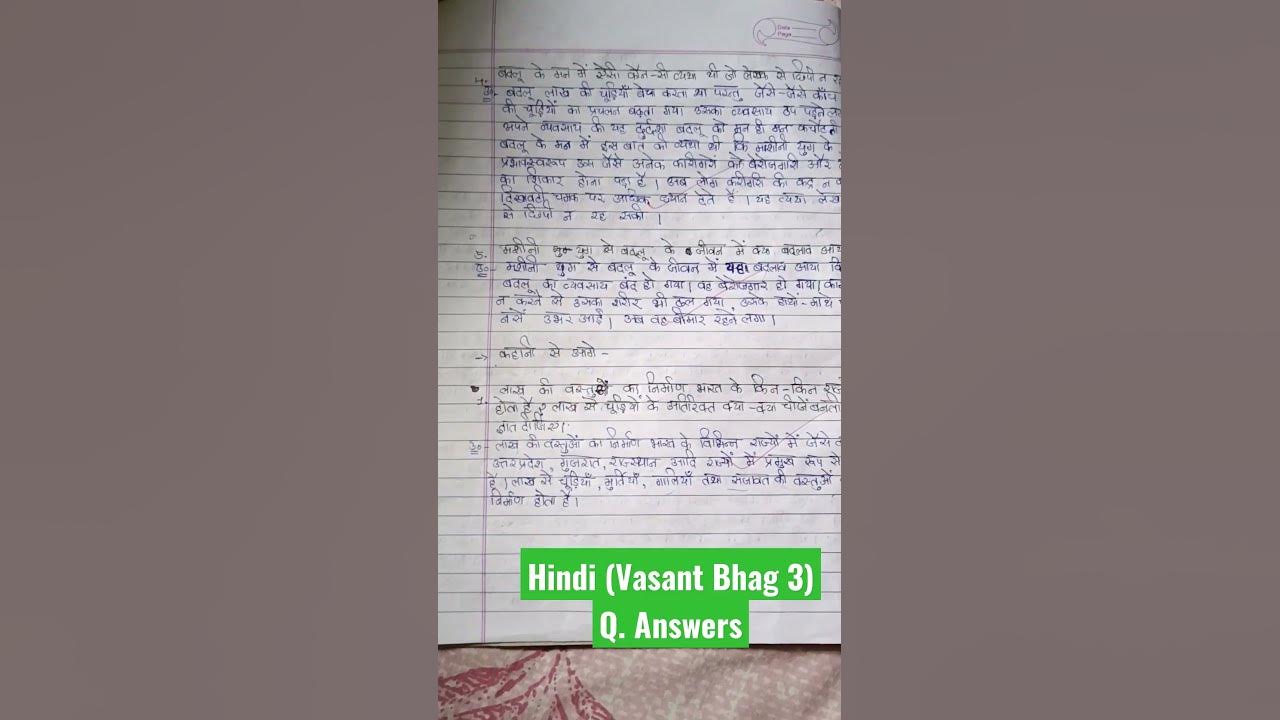 Date
Page
4. बदलू के मन में ऐसी कौन-सी व्यथा थी जो लेखक से छिपी न
उ०- बदलू लाख की चूड़ियाँ बेचा करता था परन्तु जैसे-जैसे काँच
की चूड़ियों का प्रचलन बढ़ता गया। उसका व्यवसाय ठप पड़ने
अपने व्यवसाय की यह दुर्दशा बदलू को मन ही मन कचोटती
बदलू के मन में इस बात की व्यथा थी कि मशीनी युग के
प्रभावस्वरूप उस जैसे अनेक कारीगरों को बेरोजगारी और
का शिकार होना पड़ा है। अब लोग कारीगरी की कद्र न
दिखावटी चमक पर अधिक ध्यान देते हैं। यह व्यथा
से छिपी न रह सकी।
5. मशीनी युग से बदलू के जीवन में क्या बदलाव
उ०- मशीनी युग से बदलू के जीवन में यह बदलाव आया
बदलू का व्यवसाय बंद हो गया। वह बेरोजगार हो गया।
न करने से उसका शरीर भी ढल गया, उसके हाथों-माथे
नसें उभर आई। अब वह बीमार रहने लगा।
→ कहानी से आगे -
1. लाख की वस्तुओं का निर्माण भारत के किन-किन
होता है? लाख से चूड़ियों के अतिरिक्त क्या-क्या चीजें
ज्ञात कीजिए।
उ०- लाख की वस्तुओं का निर्माण भारत के विभिन्न राज्यों में जैसे
उत्तरप्रदेश, गुजरात, राजस्थान आदि राज्यों में प्रमुख रूप से
है। लाख से चूड़ियाँ, मूर्तियाँ, तथा सजावट की वस्तुओं
निर्माण होता है।
Hindi (Vasant Bhag 3)
Q. Answers